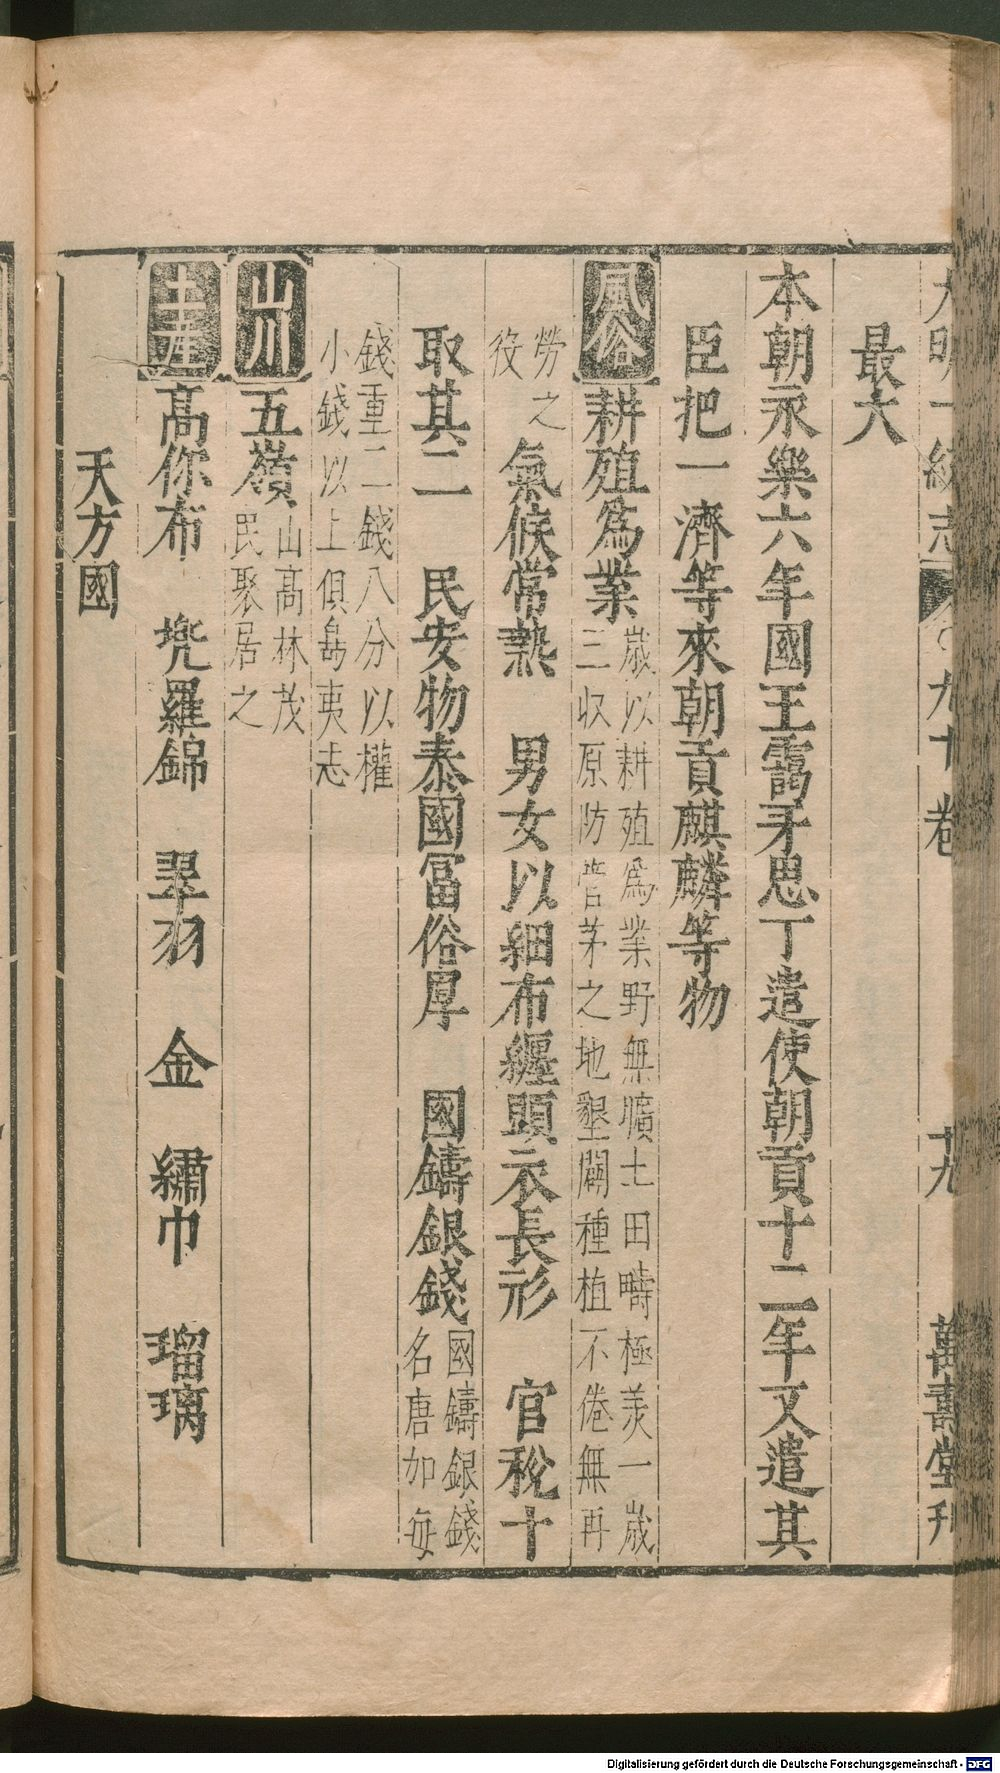 大明一統志 卷之九十卷 十九 萬壽堂刊
最大
本朝永樂六年國王靄牙思丁遣使朝貢十二年又遣其
臣把一濟等來朝貢麒麟等物
風俗 耕殖為業 歲以耕殖為業野無曠土田疇極美一歲
三収原防菅茅之地墾闢種植不倦無再
勞之
役 氣候常熱 男女以細布纏頭衣長衫 官稅十
取其二 民安物泰國冨俗厚 國鑄銀錢 國鑄銀錢
名唐加每
錢重二錢八分以權
小錢以上俱島夷志
山川 五嶺 山高林茂
民聚居之
土產 高你布 兠羅錦 翠羽 金 繡巾 瑠璃
天方國
Digitalisierung gefördert durch die Deutsche Forschungsgemeinschaft - DFG